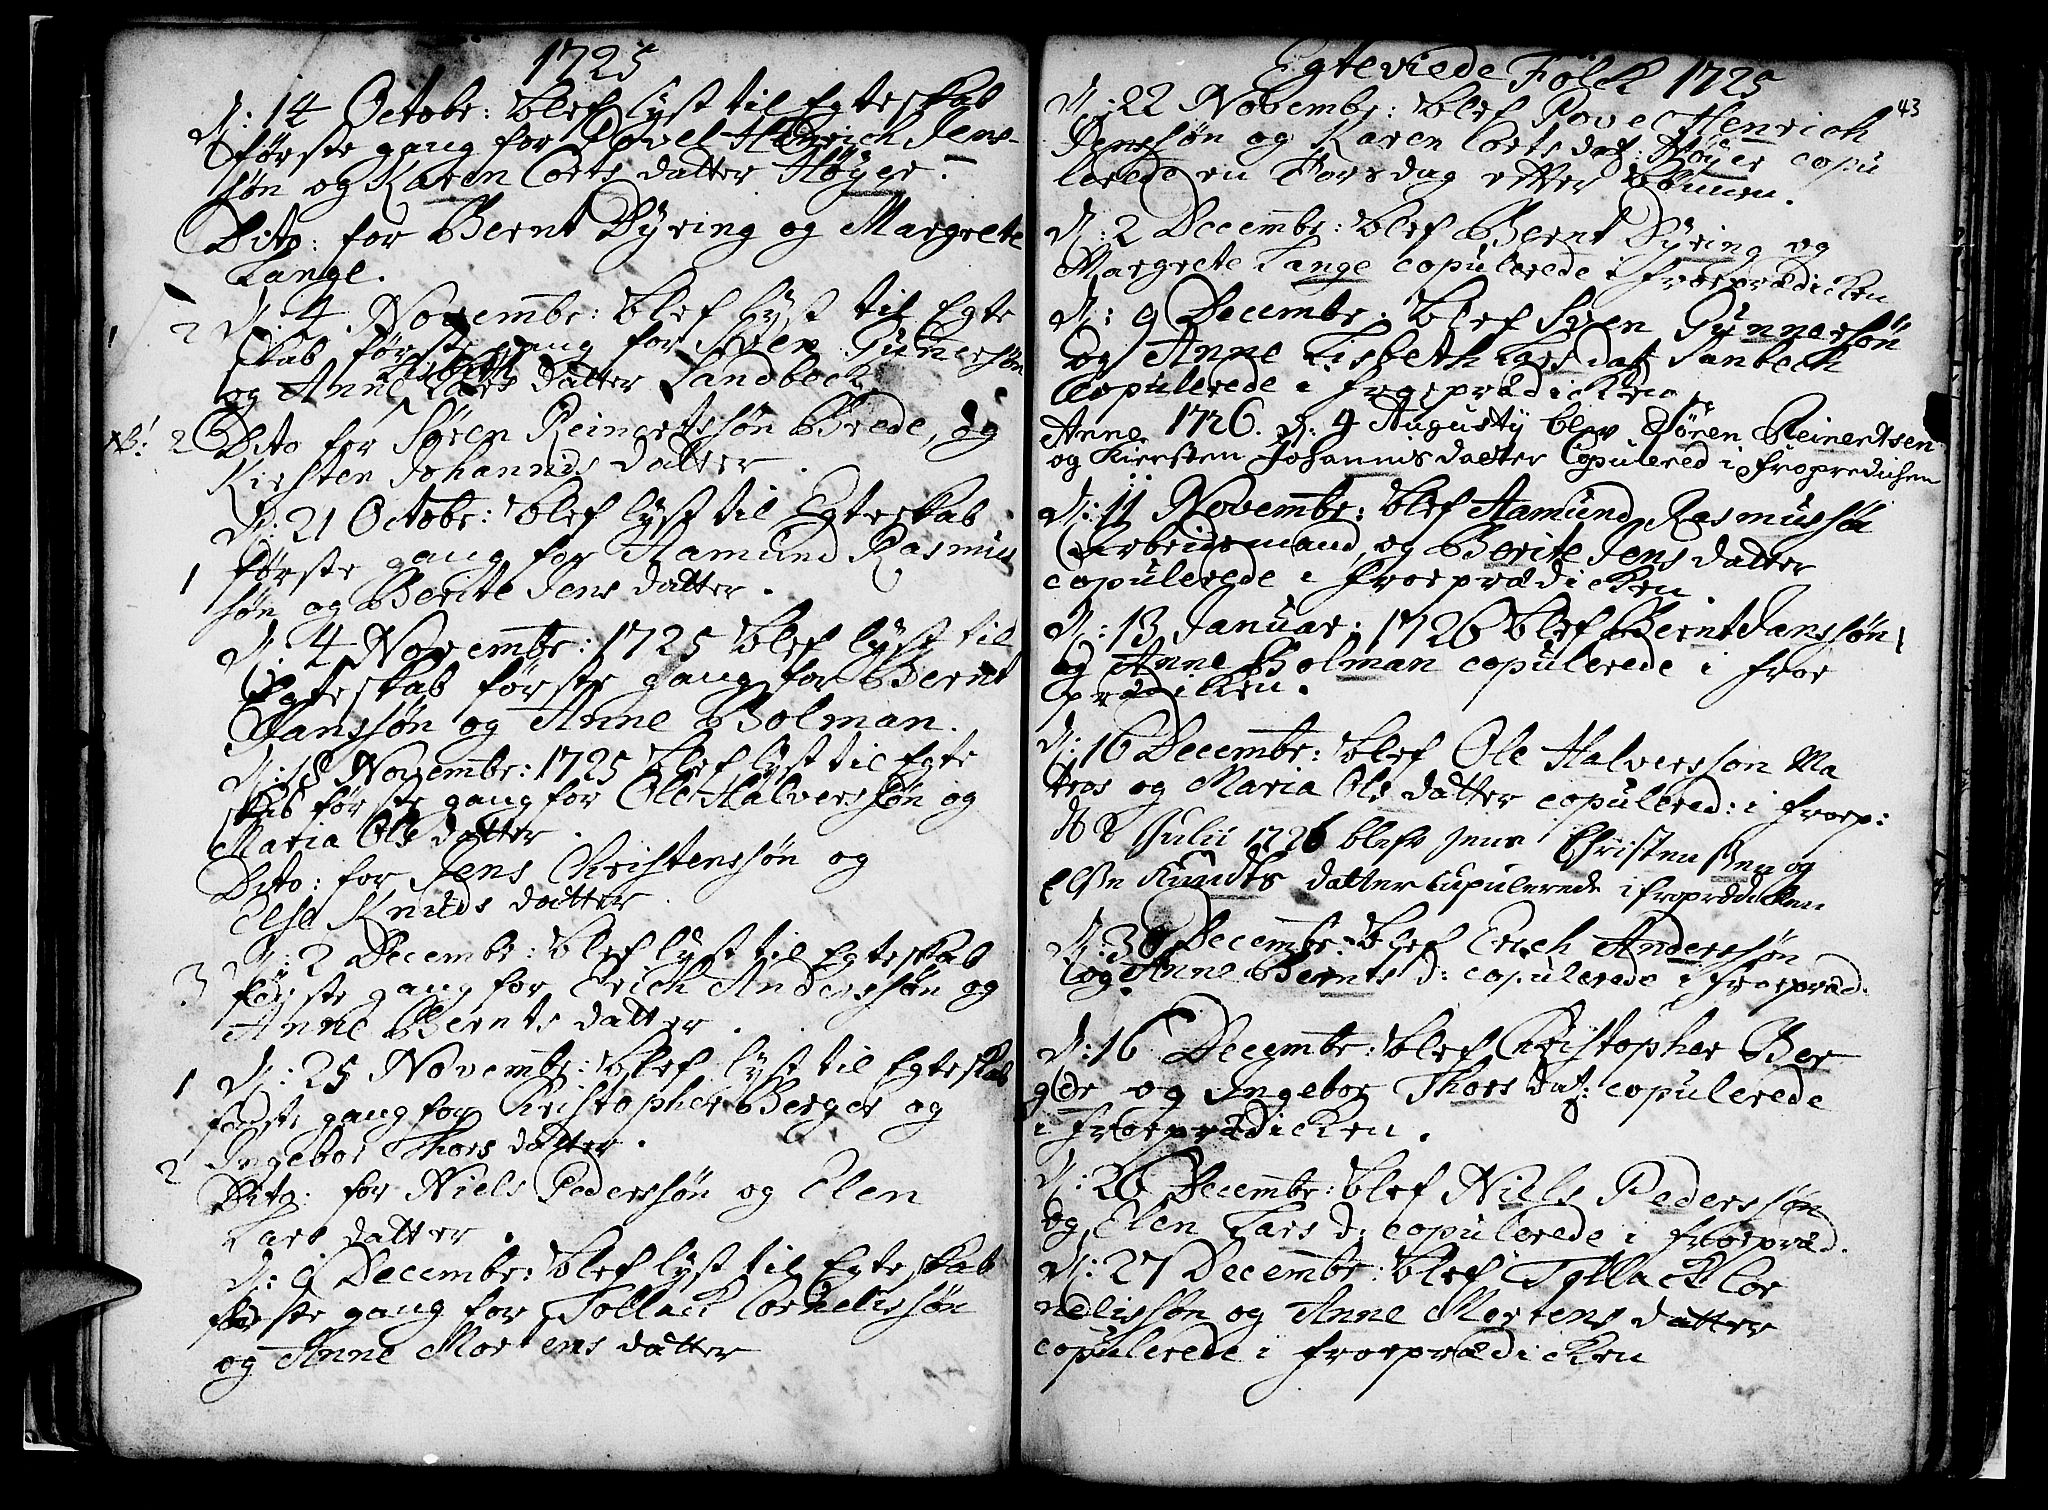 1725
d: 14 Octobr: blef lyst til Egteskab
første gang for Povel Henrich Jens-
søn og Karen Corts datter Høyer.
Dito: for Bernt Dyring og Margrete
Lange.
1 2 d: 4 Novembr: blef lyst til Egte
skab første gang for Sven Gunersøn
Lisbeth
og Anne Lars datter Sandbeck
NB! 2 Dito for Søren Reinertssøn Brede, og
Kirsten Johannis datter.
d: 21 Octobr: blef lyst til Egteskab
første gang for Aamund Rasmus
1
søn og Berite Jens datter.
d. 4 Novembr: 1725 blef lyst til
Egteskab første gang for Bernt
Janssøn og Anne Bolman.
d: 18 Novembr: 1725 blef lyst til Egte
skab første gang for Ole Halverssøn og
Maria Ols datter.
Dito: for Jens Christenssøn og
Else Knuds datter.
d: 2 Decembr: blef lyst til Egteskab
3 første gang for Erich Anderssøn og
Anne Bernts datter.
1 d: 25 Novembr: blef lyst til Egteskab
første gang for Christopher Berger og
Ingebor Thors datter.
2 Dito: for Niels Pederssøn og Elen
Lars datter.
d: 9 Decembr: blef lyst til Egteskab
første gang for Tollack Cornelissøn
og Anne Mortens datter
Egteviede Folck 1725
43
d: 22 Novembr: blef Povel Henrich
Jenssøn og Karen Corts dat: Høyer copu
lerede en Torsdag efter Bönnen.
d: 2 Decembr: blef Bernt Dyring og
Margrete Lange copulerede i froeprædicken
d: 9 Decembr: blef Sven Gunnersøn
og Anne Lisbeth Lars dat Sanbeck
Copulerede i froeprædicken
Anne. 1726. d: 9 Augusty blev Sören Reinertsen
og Kiersten Johannis daetter Copulered i fropredichen
d: 11 Novembr: blef Aamund Rasmussøn
Arbeidsmand, og Berite Jens datter
copulerede i froeprædicken.
d: 13 Januar: 1726 blef Bernt Janssøn
og Anne Bolman copulerede i froe
prædicken.
d: 16 Decembr: blef Ole Halverssøn Ma
tros og Maria Ols datter copulered: i froep:
d 8 Julii 1726 blefv Jens Christensen og
Else Knudts datter cupulerede i froprædicken
d: 30 Decembr: blef Erich Anderssøn
og Anne Bernts d: copulerede i froepræd.
d: 16 Decembr: blef Christopher Ber
ger og Ingebor Thors dat: copulerede
i froeprædicken.
d: 26 Decembr: blef Niels Pederssøn
og Elen Lars d: copulerede i froepræd.
d: 27 Decembr: blef Tollack Cor
nelissøn og Anne Mortens datter
copulerede i froeprædicken